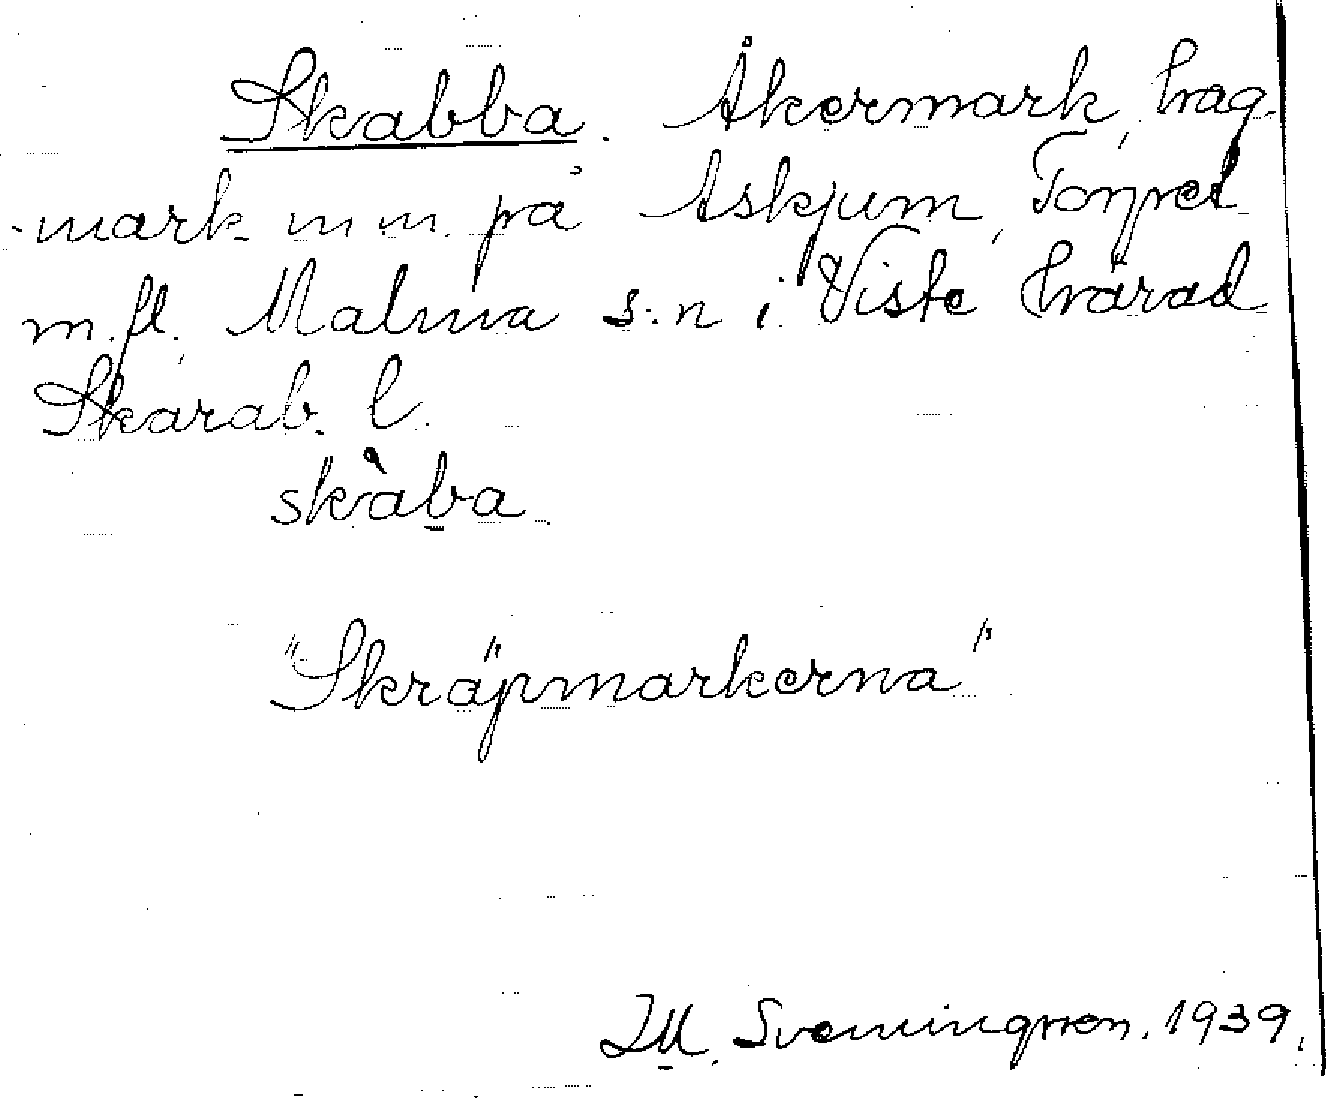 Skabba. Åkermark, hag-
mark m m. på Askjum, Torpet
m.fl., Malma s:n i Viste härad
Skarab. l.
skàba
"Skräpmarkerna"
IM. Svenningsson. 1939.